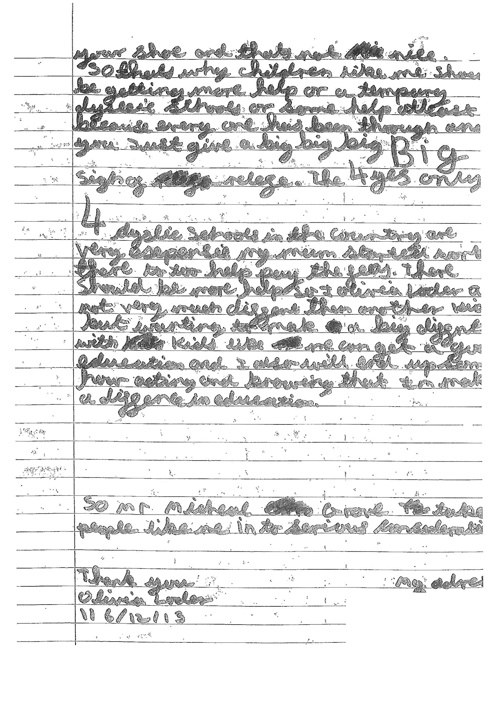 your shoe and thats not nice.
So thats why children like me shou
be getting more help or a tempury
dyslexic schools or some help atleast
because every one has been through and
you Just give a big big big Big
Sigh of relege. The 4 yes only
4 dyslic schools in the country are
very and my mum
there to help pay the fees. There
should be more help So I olivia Loder a
not very much diggent than another
but wanting to mak a big diggen
with kids like me can get a
education and I also will end up
how acting and knowing that Im mak
a diggen in education.
So mr Micheal Grove to take
people like me in to serious consideratio
Thank you my adres
Olivia Loder
11 6/12/13